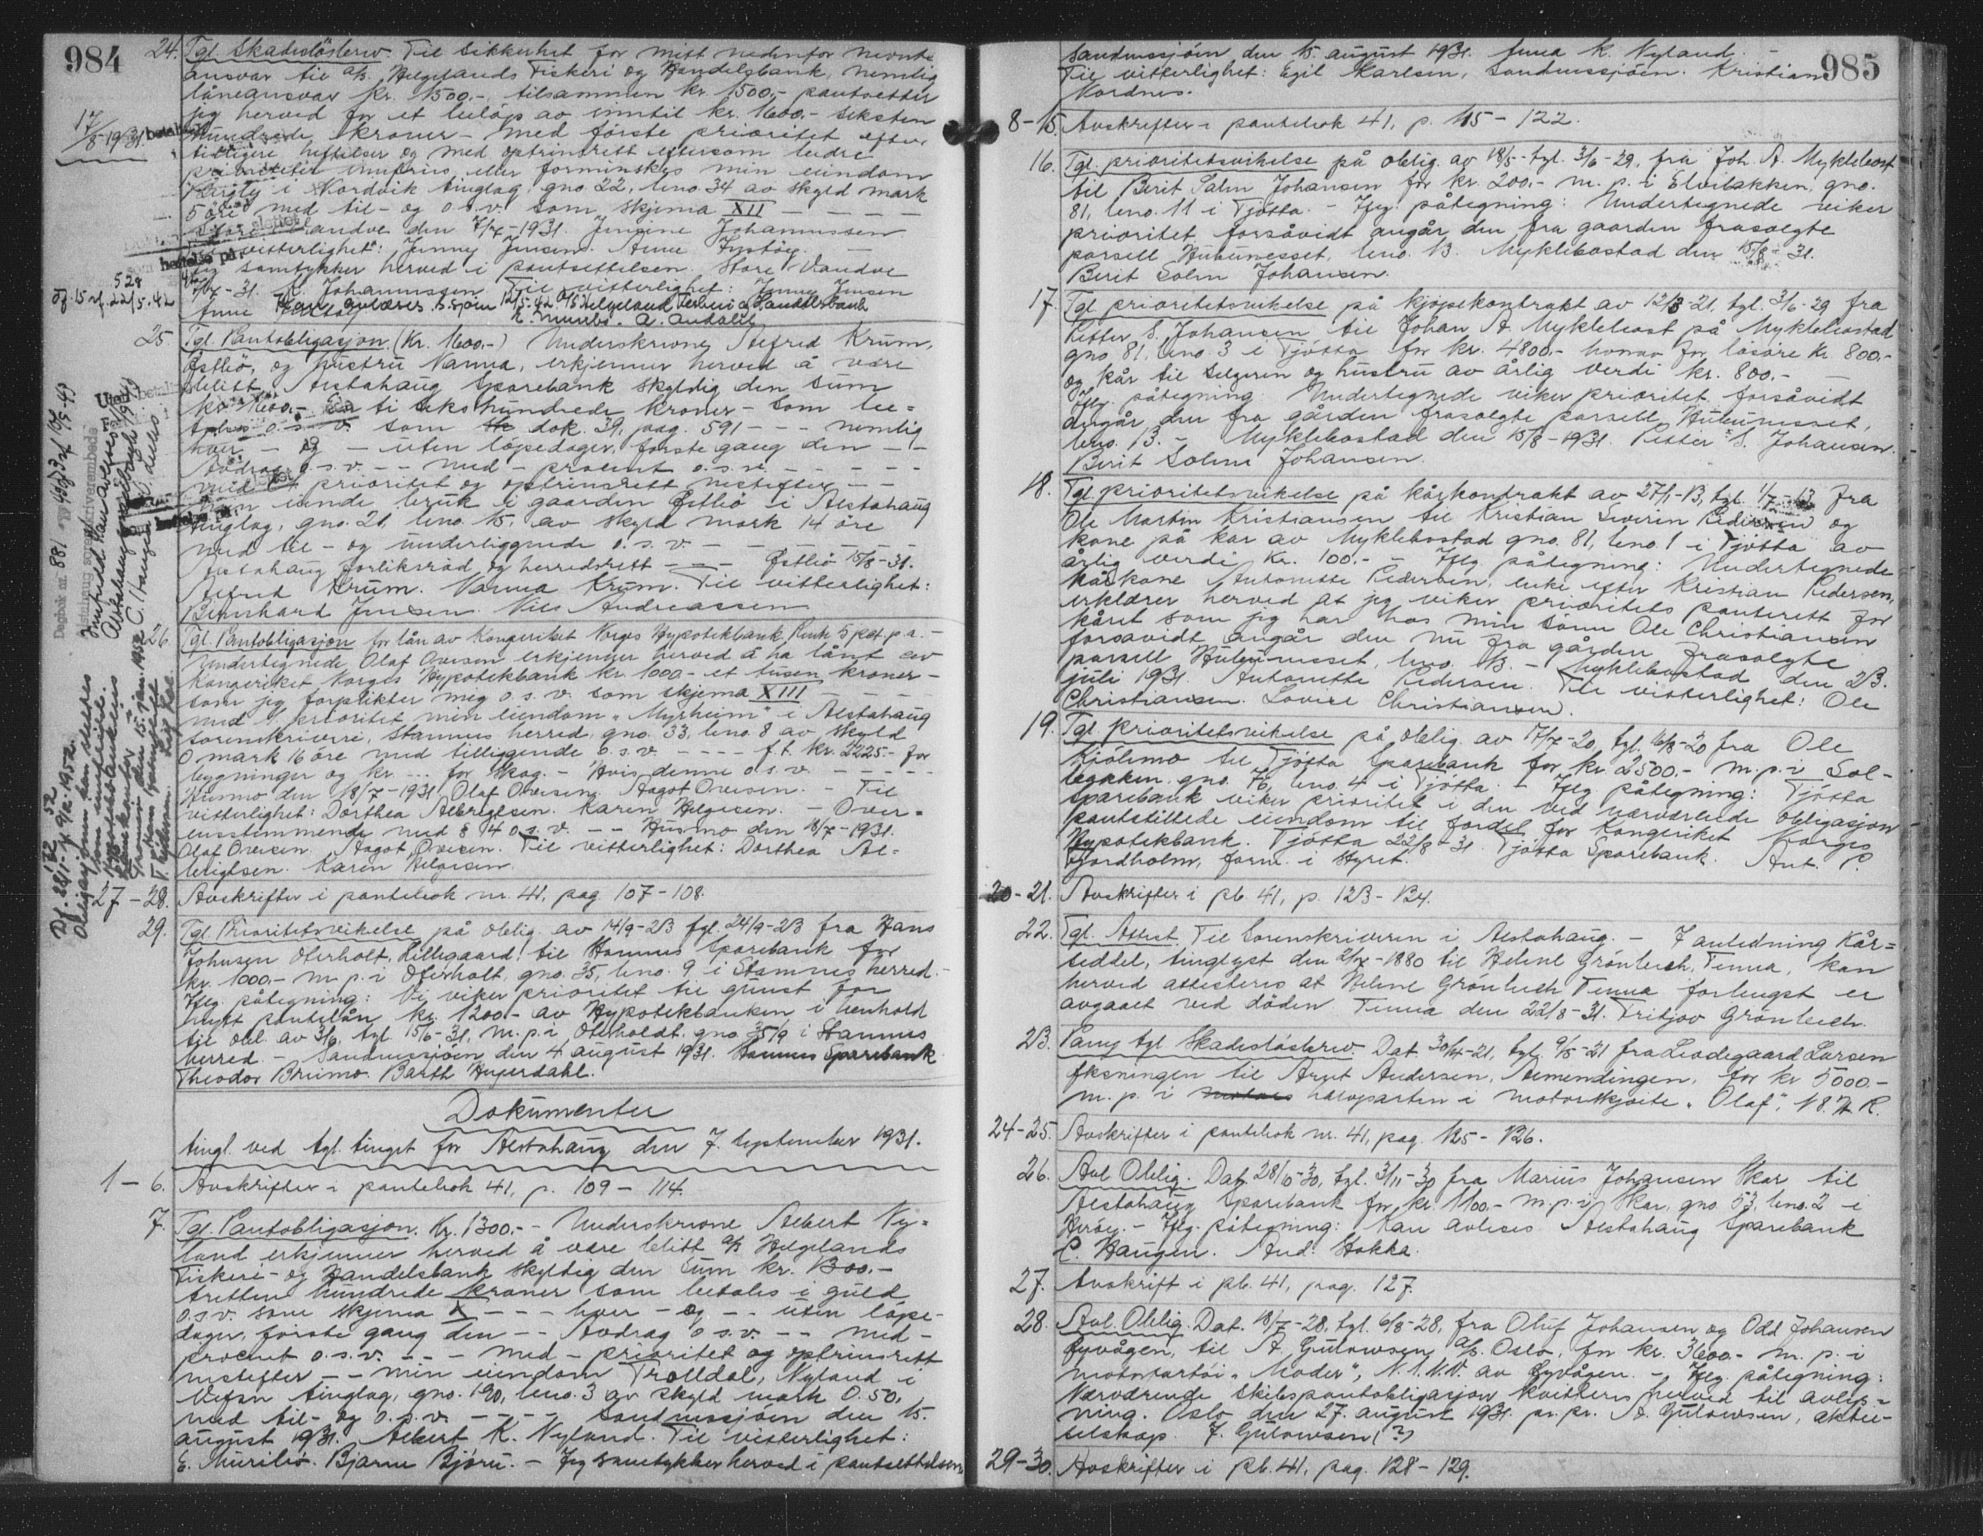 984
24. Tgl. Skadesløsbrev. Til sikkerhet for mitt nedenfor nevnte
ansvar til a/s Helgelands Fiskeri og Handelsbank, nemlig
låneansvar kr. 1500,-, tilsammen kr. 1500,- pantsetter
jeg herved for et beløp av inntil kr. 1600,- seksten
hundrede kroner - med første prioritet efter
tidligere heftelser og med optrinsrett eftersom bedre
prioriteter innfries eller forminskes min eiendom
i Nordvik tinglag, gno. 22, bno. 34 av skyld mark
5 øre med til- og o.s.v. som skjema XII - - - -
Store Vandve den 7/7-1931. Jensine Johannessen
Til vitterlighet: Jenny Jensen. Anne
Jeg samtykker herved i pantsettelsen. Store Vandve
7/7-31. K. Johannessen. Til vitterlighet: Jenny Jensen
Anne
Kan avlæses. S.sjøen 12/5-42 A/S Helgeland Fiskeri & Handelsbank
17/8-1931
528
Df. 15 22/5.42
25. Tgl. Pantobligasjon. (Kr. 1600.-) Underskrevne Alfred Krum,
Østbø, og hustru Nanna, erkjenner herved å være
blitt Alstahaug Sparebank skyldig den sum
kr. 1600,- En ti sekshundrede kroner - som be-
tales o.s.v. som dok. 39, pag. 591 - - - nemlig
hver - og - uten løpedager, første gang den - -
Avdrag o.s.v. - - med - procent o.s.v. - - - -
med prioritet og optrinsrett nestefter - -
min eiende bruk i gaarden Østbø i Alstahaug
tinglag, gno. 21, bno. 15, av skyld mark 14 øre
med til- og underliggende o.s.v. - - - - -
Alstahaug forliksråd og herredsrett - - - Østbø 15/8-31.
Alfred Krum. Nanna Krum. Til vitterlighet:
Bernhard Jensen. Nils Andreassen
26. Tgl. Pantobligasjon for lån av Kongeriket Norges Hypotekbank. Rente 5 pct. p.a. -
Undertegnede Olaf Oveisen erkjenner herved å ha lånt av
Kongeriket Norges Hypotekbank kr. 1000.- et tusen kroner -
som jeg forplikter mig o.s.v. som skjema XIII - - -
med 1. prioritet min eiendom "Myrheim" i Alstahaug
sorenskriveri, Stamnes herred, gno. 33, bno. 8 av skyld
0 mark 16 øre med tilliggende o.s.v. - - - - f.t. kr. 2225.- for
bygninger og kr. ... for skog. - Hvis denne o.s.v. - - - -
Husmo den 18/7-1931. Olaf Oveisen. Aagot Oveisen. - Til
vitterlighet: Dorthea Albrigtsen. Karen Helgesen. - Over-
ensstemmende med § 14 o.s.v. - - Husmo den 18/7-1931.
Olaf Oveisen. Aagot Oveisen. Til vitterlighet: Dorthea Al-
brigtsen. Karen Helgesen.
27-28. Avskrifter i pantebok nr. 41, pag 107-108.
29. Tgl. Prioritetsvikelse på oblig. av 14/9-23 tgl. 24/9-23 fra Hans
Johnsen Oterholt, Hellegaard! til Stamnes Sparebank for
kr. 1000,- m.p. i Oterholt, gno. 35, bno. 9 i Stamnes herred.
Iflg. påtegning: Vi viker prioritet til gunst for
nytt pantelån kr. 1200.- av Hypotekbanken i henhold
til obl. av 3/6, tgl. 15/6-31, m.p. i Oterholdt, gno. 35/9 i Stamnes
herred. - Sandnessjøen den 4. august 1931. Stamnes Sparebank
Theodor Brumo. Barth Heyerdahl.
Dokumenter
tingl. ved tgl. tinget for Alstahaug den 7. September 1931.
1-6. Avskrifter i pantebok 41, p. 109-114.
7. Tgl. Pantobligasjon. Kr. 1300.-- Underskrevne Albert Ny-
land erkjenner herved å være blitt a/s Helgelands
Fiskeri- og Handelsbank skyldig den sum kr. 1300.-
tretten hundrede kroner som betales i guld
o.s.v. som skjema X - - - hver - og - - uten løpe-
dager, første gang den - - Avdrag o.s.v. - - med -
procent o.s.v. - - - med - prioritet og optrinsrett
nestefter - - min eiendom Trolldal, Nyland i
Vefsn tinglag, gno. 190, bno. 3 av skyld mark 0.50,
med til- og o.s.v. - - - - Sandnessjøen den 15.
august 1931. Albert K. Nyland. Til vitterlighet:
E. Murebø. Bjarne Bjøru. - Jeg samtykker herved i pantsettelsen
985
Sandnessjøen den 15. august 1931. Anna K. Nyland. -
Til vitterlighet: Egil Karlsen, Sandnessjøen. Kristian
Nordnes.
8-15. Avskrifter i pantebok 41, p. 115-122.
16. Tgl. prioritetsvikelse på oblig. av 18/5- tgl. 3/6-29, fra Joh. A. Myklebost
til Berit Salin Johansen for kr. 200,- m.p. i Elvebakken, gno.
81, bno. 11 i Tjøtta. - Iflg. påtegning: Undertegnede viker
prioritet forsåvidt angår den fra gaarden frasolgte
parsell Hubunesset, bno. 13. Myklebostad den 15/8-31.
Berit Solin Johansen.
17. Tgl. prioritetsvikelse på kjøpekontrakt av 12/3-21, tgl. 3/6-29 fra
Petter S. Johansen til Johan A. Myklebost på Myklebostad
gno. 81, bno. 3 i Tjøtta for kr. 4800,- hvorav for løsøre kr. 800,-
og kår til selgeren og hustru av årlig verdi kr. 800.-
Iflg. påtegning: Undertegnede viker prioritet forsåvidt
angår den fra gården frasolgte parsell Hubunesset,
bno. 13. - Myklebostad den 15/8-1931. Petter S. Johansen.
Berit Soline Johansen.
18. Tgl. prioritetsvikelse på kårkontrakt av 27/1-13, tgl. 1/7-13 fra
Ole Martin Kristiansen til Kristian Severin Pedersen og
kone på kår av Myklebostad gno. 81, bno. 1 i Tjøtta av
årlig verdi kr. 100.- - Iflg. påtegning: Undertegnede
kårkone Antonette Pedersen, enke efter Kristian Pedersen,
erklærer herved at jeg viker prioritets panterett for
kåret som jeg har hos min sønn Ole Christiansen
forsåvidt angår den nu fra gården frasolgte
parsell Hubunesset, bno. 13. - Myklebostad den 23.
juli 1931. Antonette Pedersen. Til vitterlighet: Ole
Christiansen. Lovise Christiansen.
19. Tgl. prioritetsvikelse på oblig. av 17/7-20, tgl. 16/8-20 fra Ole
Kjølmo til Tjøtta Sparebank for kr. 2500.- m.p. i Sol-
bakken, gno. 76, bno. 4 i Tjøtta. - Iflg. påtegning: Tjøtta
sparebank viker prioritet i den ved nærværende obligasjon
pantstillede eiendom til fordel for Kongeriket Norges
Hypotekbank. Tjøtta 22/8-31. Tjøtta Sparebank. Ant. P.
Gjordholm, form. i styret.
20-21. Avskrifter i pb. 41, p. 123-124.
22. Tgl. Attest. Til Sorenskriveren i Alstahaug. - I anledning Kår-
seddel, tinglyst den 2/7-1880 til Helene Grønbech, Tenna, kan
herved attesteres at Helene Grønbech Tenna forlengst er
avgaaet ved døden. Tenna den 22/8-31. Fritjov Grønbech.
23. Pany tgl. Skadesløsbrev. Dat. 30/4-21, tgl. 9/5-21 fra Leodegaard Larsen
til Arnt Andersen, Almendingen, for kr. 5000.-
m.p. i halvparten i motorskøite "Olaf", N. 87 A.R.
24-25. Avskrifter i pantebok nr. 41, pag. 125-126.
26. Avl. Oblig. Dat. 28/10-30, tgl. 3/11-30 fra Marius Johansen Skar til
Alstahaug Sparebank for kr. 1100.- m.p. i Skar, gno. 53, bno. 2 i
Herøy. - Iflg. påtegning: Kan avleses. Alstahaug Sparebank
C. Haugen. And. Hokka.
27. Avskrift i pb. 41, pag. 127.
28. Avl. Oblig. Dat. 18/7-28, tgl. 6/8-28, fra Oluf Johansen og Odd Johansen
Gyvågen, til A. Gulowsen a/s Oslo, for kr. 3600.- m.p. i
motorfartøi "Moder", av Gyvågen. - Iflg. påtegning:
Nærværende skibspantobligasjon kvitteres herved til avløs-
ning. Oslo den 27. august 1931. pr. pr. A. Gulowsen, aktie-
selskap. J. Gulowsen (?)
29-30. Avskrifter i pb. 41, pag. 128-129.